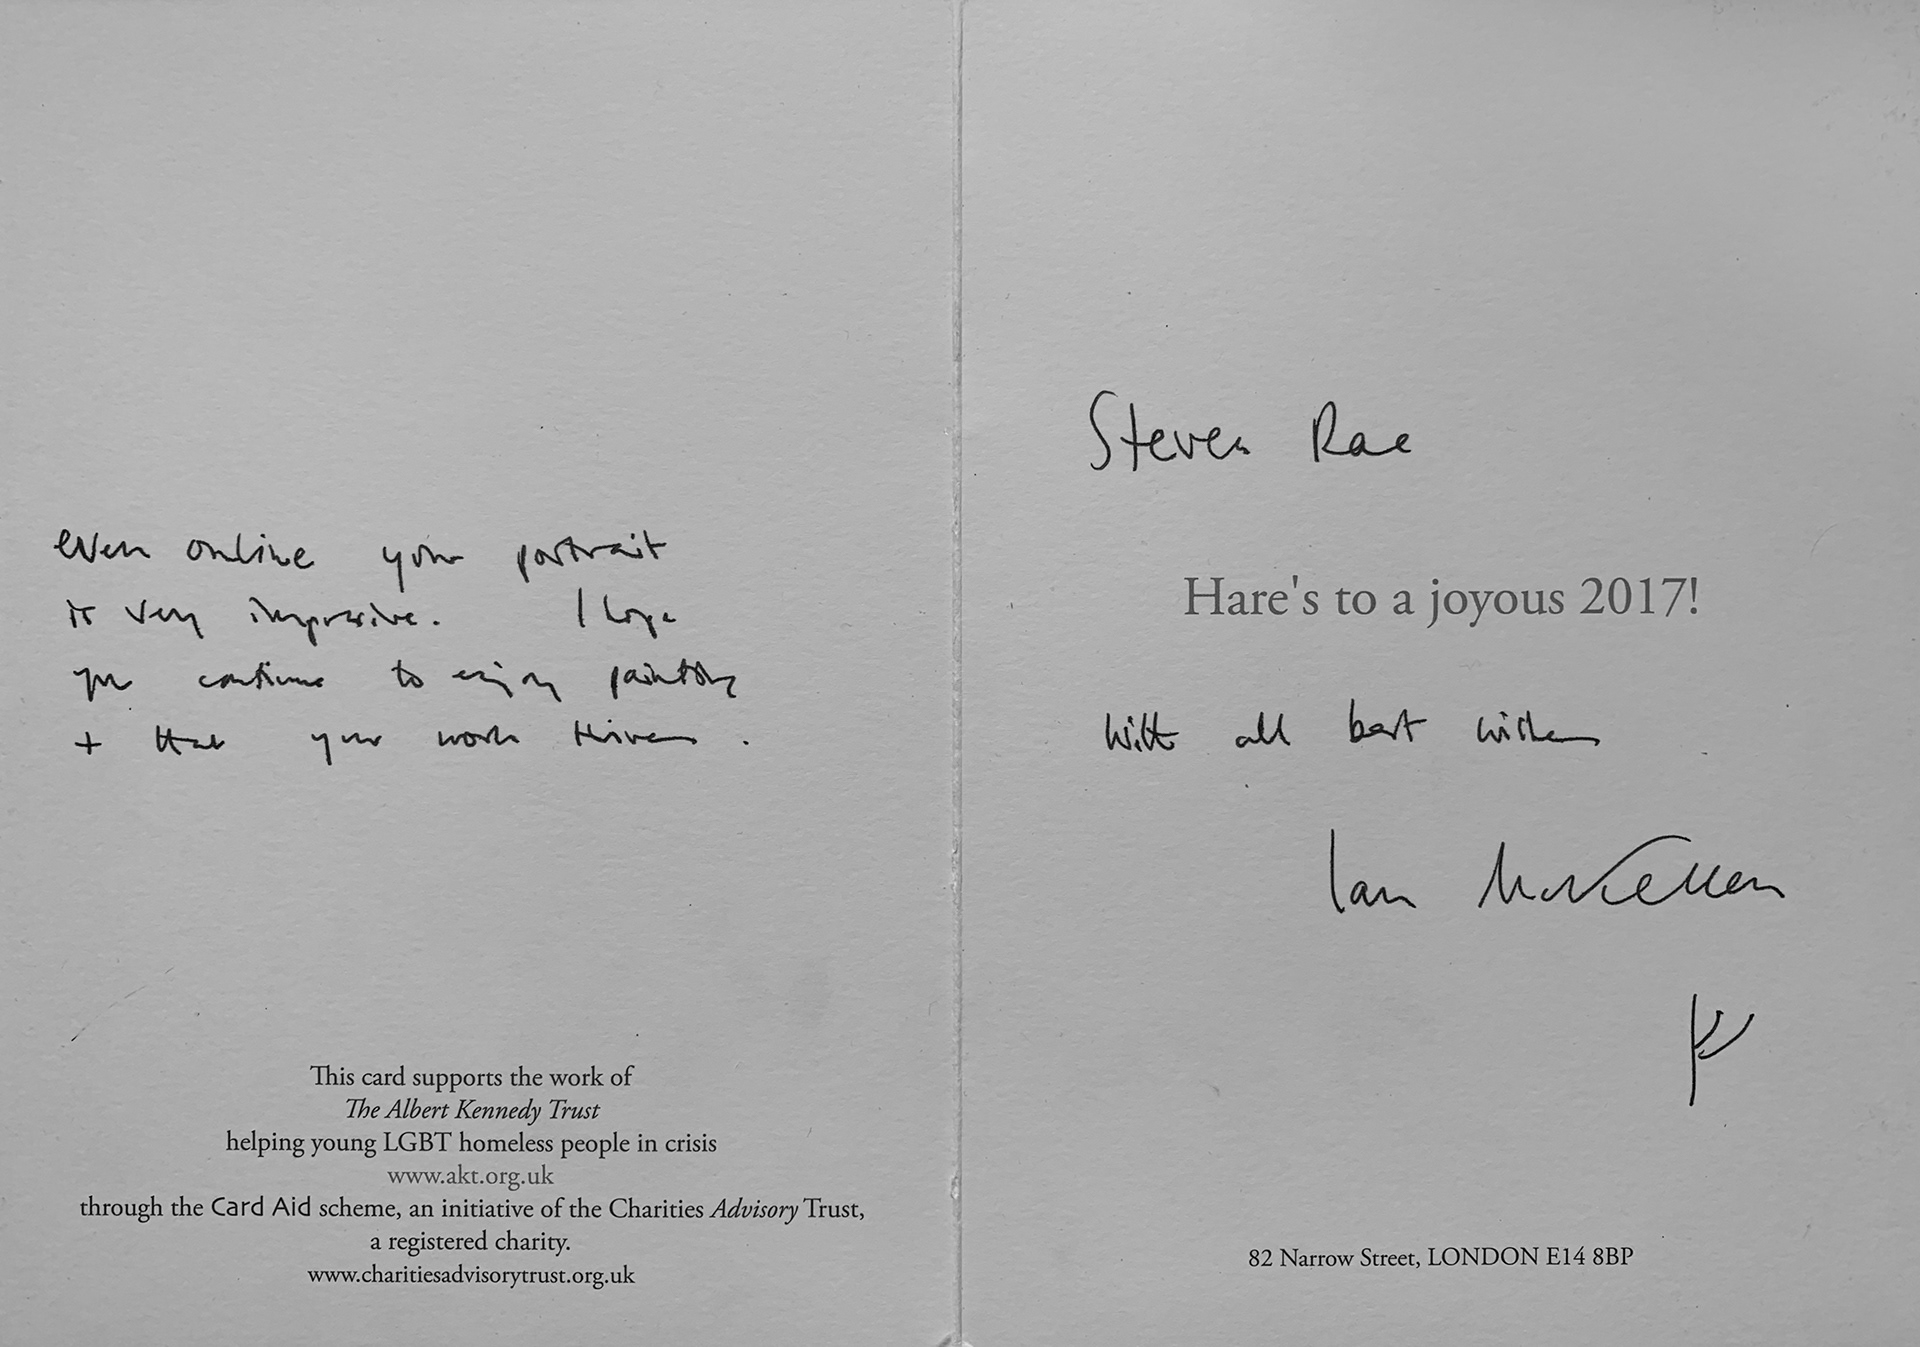 even online your portrait
is very impressive. I hope
you continue to enjoy painting
+ that your work thrives.
This card supports the work of
The Albert Kennedy Trust
helping young LGBT homeless people in crisis
www.akt.org.uk
through the Card Aid scheme, an initiative of the Charities Advisory Trust,
a registered charity.
www.charitiesadvisorytrust.org.uk
Steven Rae
Hare's to a joyous 2017!
With all best wishes
Ian McKellen
ᚠ
82 Narrow Street, LONDON E14 8BP